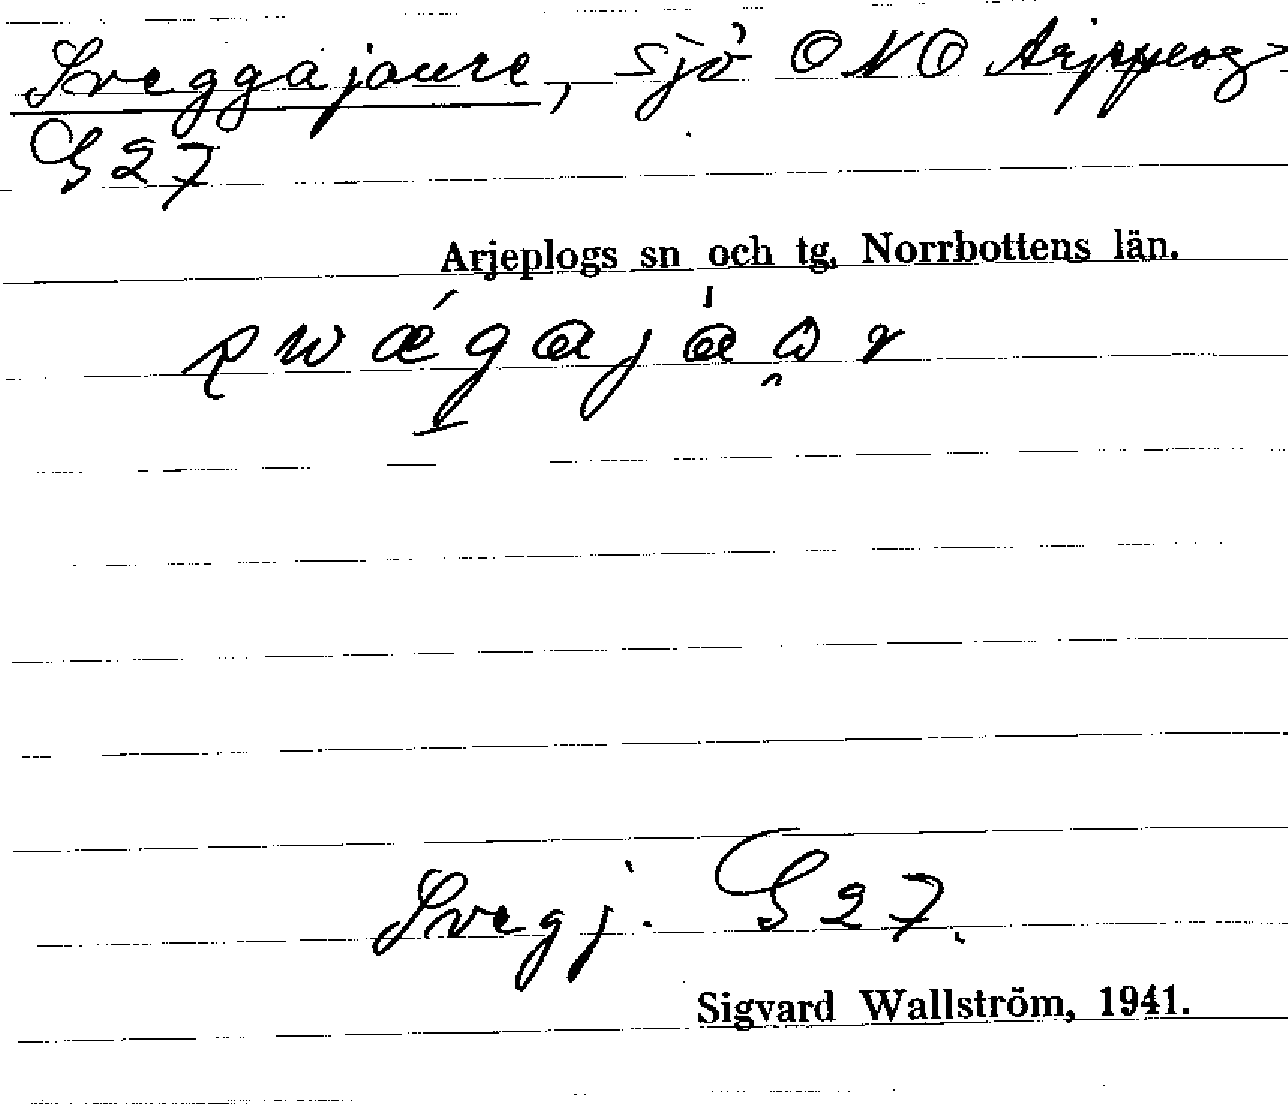 Sveggajaure, sjö ONO Arjeplog
G 27
Arjeplogs sn och tg. Norrbottens län.
Svegj. G 27.
Sigvard Wallström, 1941.